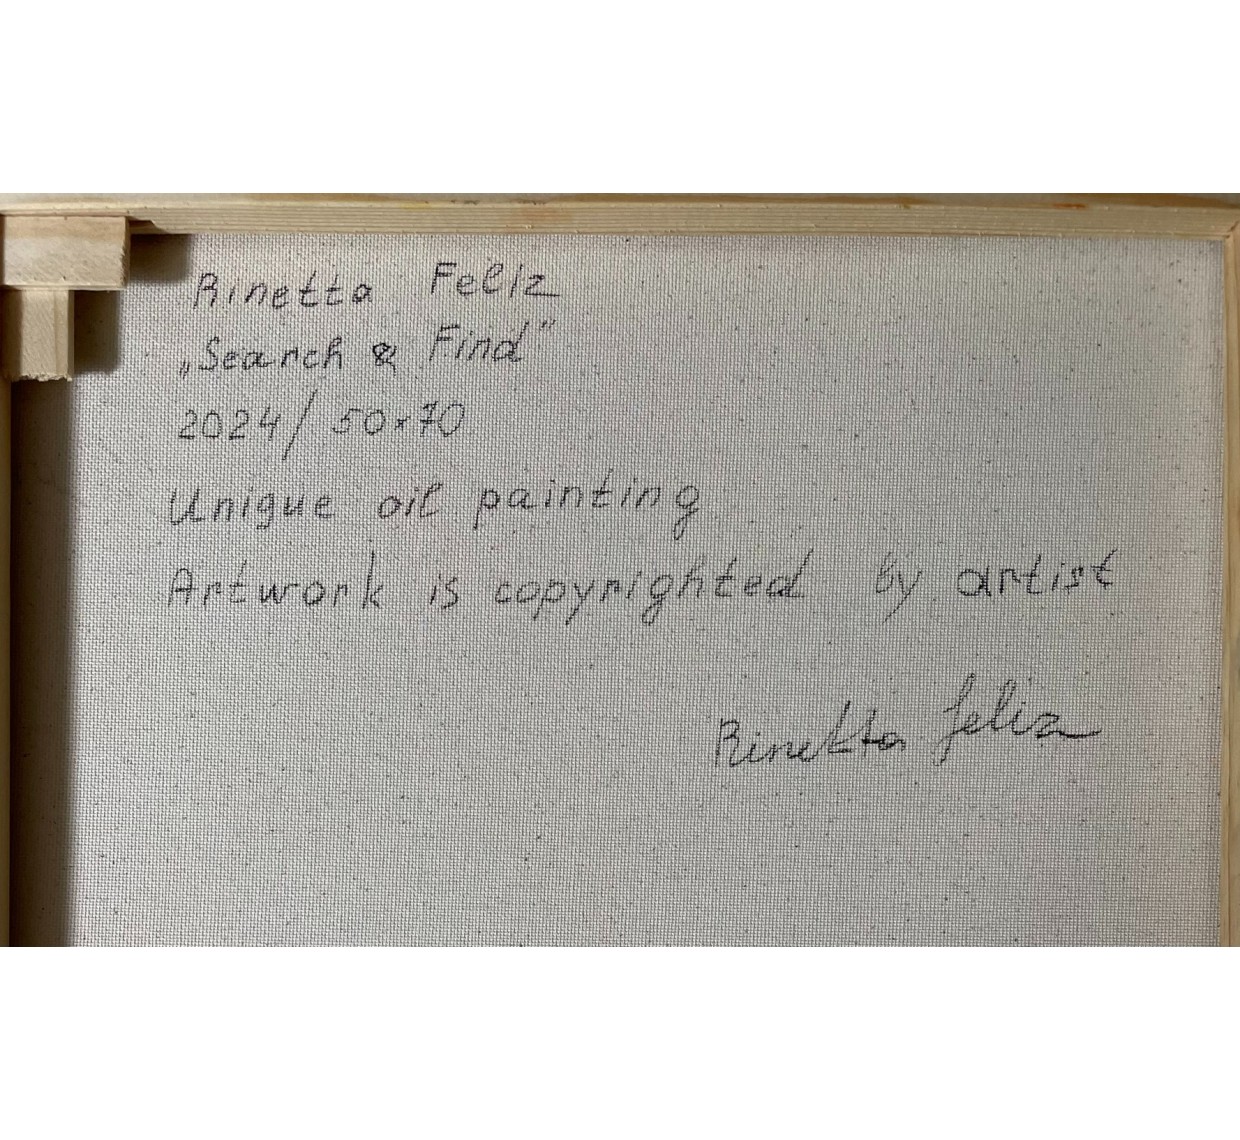 Rinetta Feliz
„Search & Find"
2024/ 50x70
Unique oil painting
Artwork is copyrighted by artist
Rinetta Feliz